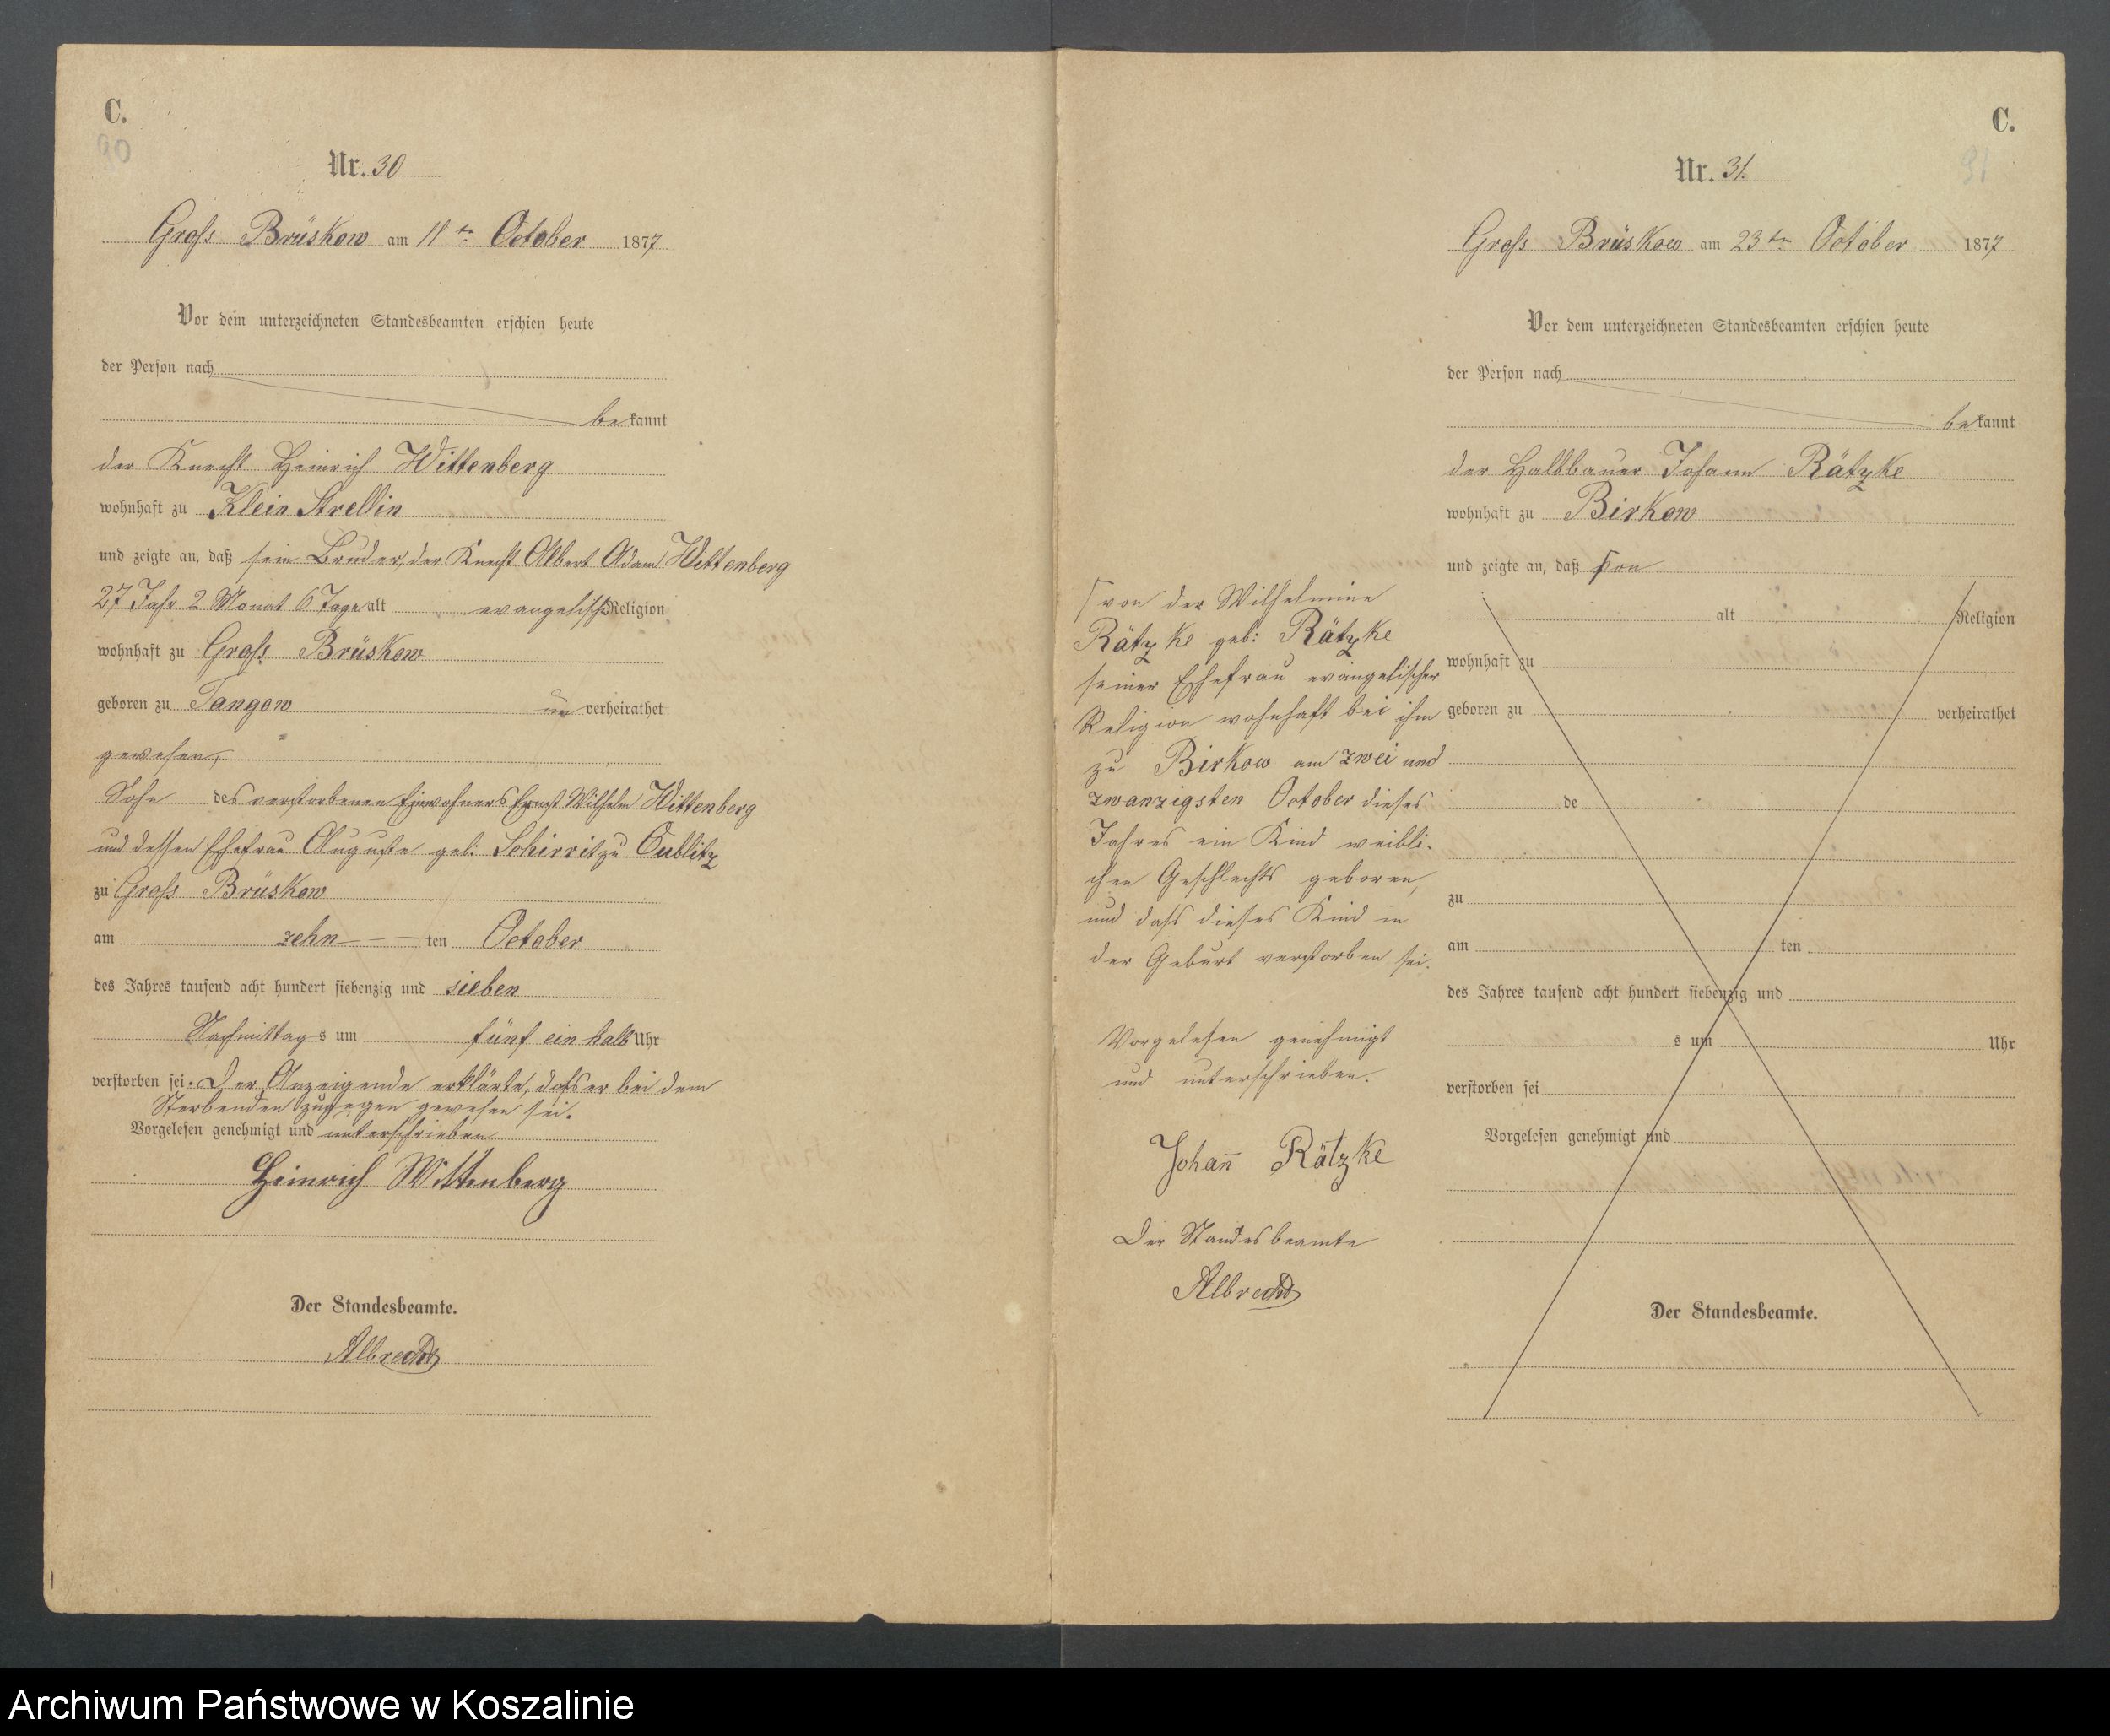 C.
90
Nr. 30
Groß Brüskow am 11ten October 1877
Vor dem unterzeichneten Standesbeamten erschien heute
der Person nach
bekannt
der Knecht Heinrich Wittenberg
wohnhaft zu Klein Strellin
und zeigte an, daß sein Bruder, der Knecht Albert Adam Wittenberg
27 Jahr 2 Monat 6 Tage alt evangelischer Religion
wohnhaft zu Groß Brüskow
geboren zu Tangow un verheirathet
gewesen,
Sohn des verstorbenen Einwohners Ernst Wilhelm Wittenberg
und dessen Ehefrau Auguste geb: Schirritzu Cublitz
zu Groß Brüskow
am zehn ten October
des Jahres tausend acht hundert siebenzig und sieben
Nachmittag s um fünf ein halb Uhr
verstorben sei. Der Anzeigende erklärte, daß er bei dem
Sterbenden zugegen gewesen sei.
Vorgelesen genehmigt und unterschrieben
Heinrich Wittenberg
Der Standesbeamte.
Albrecht
C.
91
Nr. 31.
Groß Brüskow am 23ten October 1877
Vor dem unterzeichneten Standesbeamten erschien heute
der Person nach
bekannt
der Halbbauer Johann Rätzke
wohnhaft zu Birkow
und zeigte an, daß von
von der Wilhelmine
Rätzke geb: Rätzke
seiner Ehefrau evangelischer
Religion wohnhaft bei ihm
zu Birkow am zwei und
zwanzigsten October dieses
Jahres ein Kind weibli-
chen Geschlechts geboren,
und daß dieses Kind in
der Geburt verstorben sei.
Vorgelesen genehmigt
und unterschrieben.
Johann Rätzke
Der Standesbeamte
Albrecht
alt Religion
wohnhaft zu
geboren zu verheirathet
de
zu
am ten
des Jahres tausend acht hundert siebenzig und
s um Uhr
verstorben sei
Vorgelesen genehmigt und
Der Standesbeamte.
Archiwum Państwowe w Koszalinie